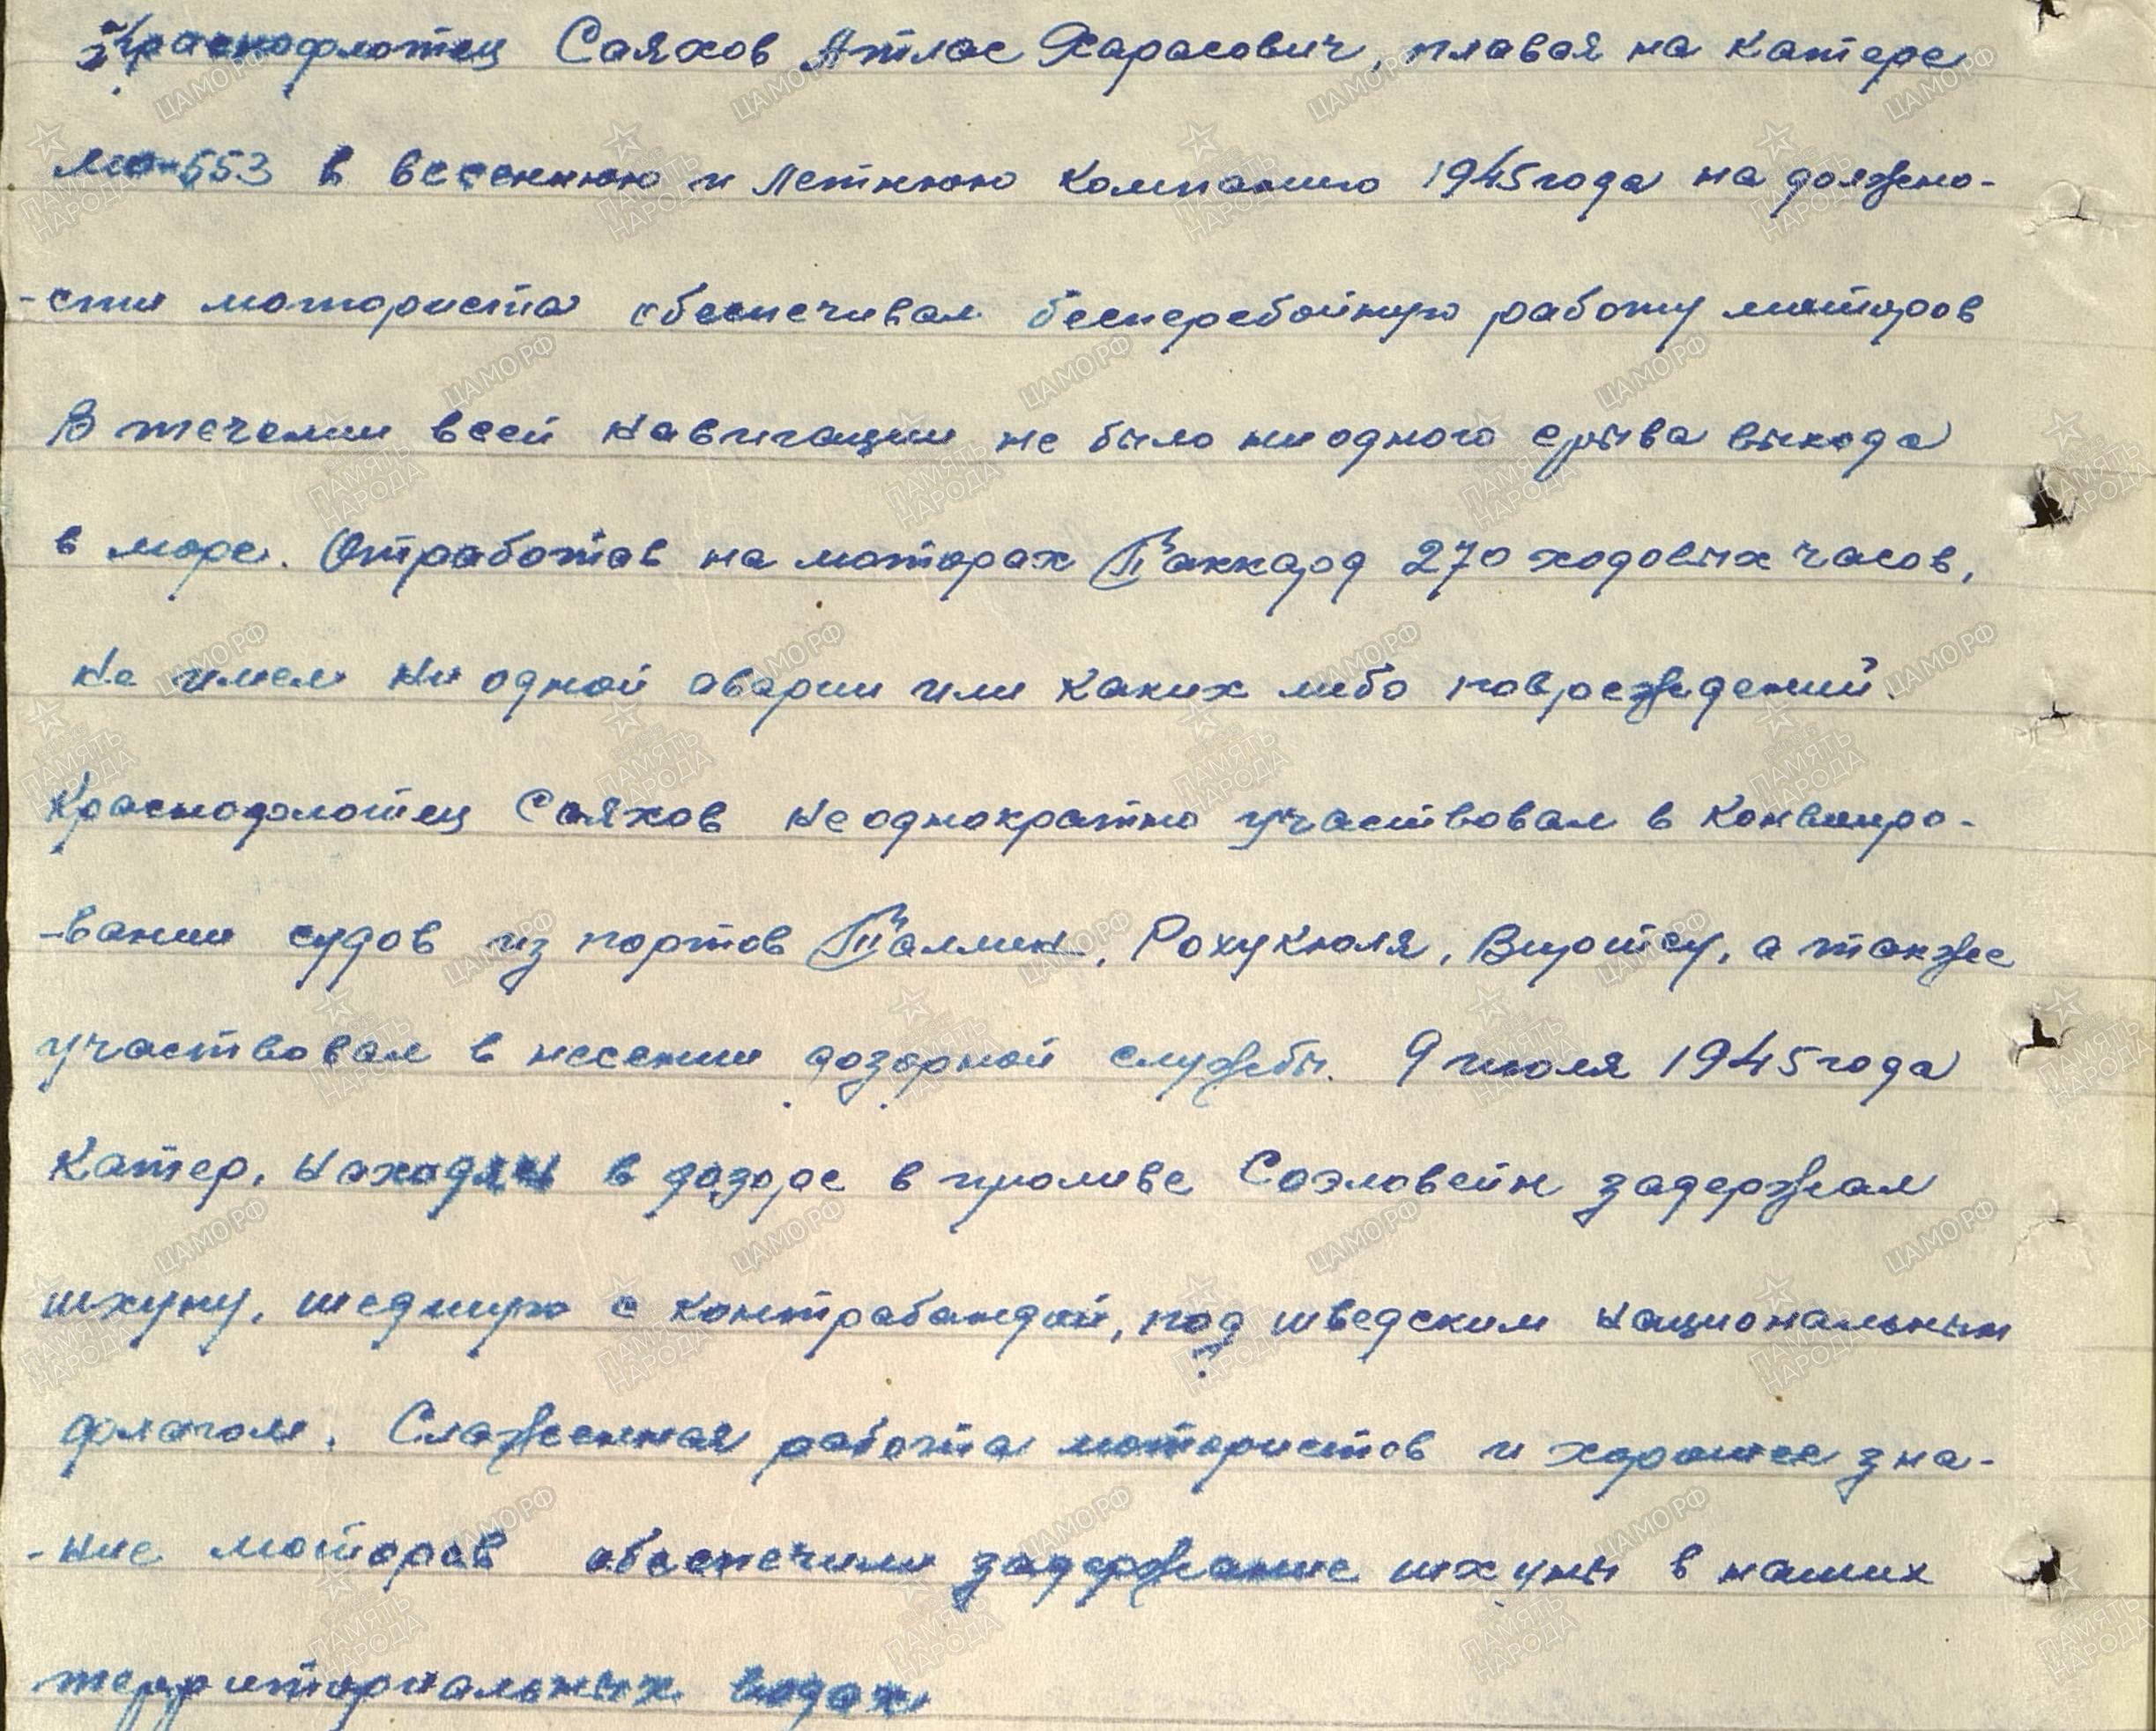 Краснофлотец Саяхов Атлас Харасович, плавая на катере
МО-553 в весеннюю и летнюю компанию 1945 года на должно-
-сти моториста обеспечивал бесперебойную работу моторов
В течении всей навигации не было ниодного срыва выхода
в море. Отработав на моторах Паккард 270 ходовых часов,
не имел ни одной аварии или каких либо повреждений.
Краснофлотец Саяхов неоднократно участвовал в конвоиро-
-вании судов из портов Таллин, Рохукюля, Виртсу, а также
участвовал в несении дозорной службы. 9 июля 1945 года
Катер, находясь в дозоре в проливе Соэловейн задержал
шхуну, шедшую с контрабандой, под шведским национальным
флагом. Слаженная работа мотористов и хорошее зна-
-ние моторов обеспечили задержание шхуны в наших
территориальных водах